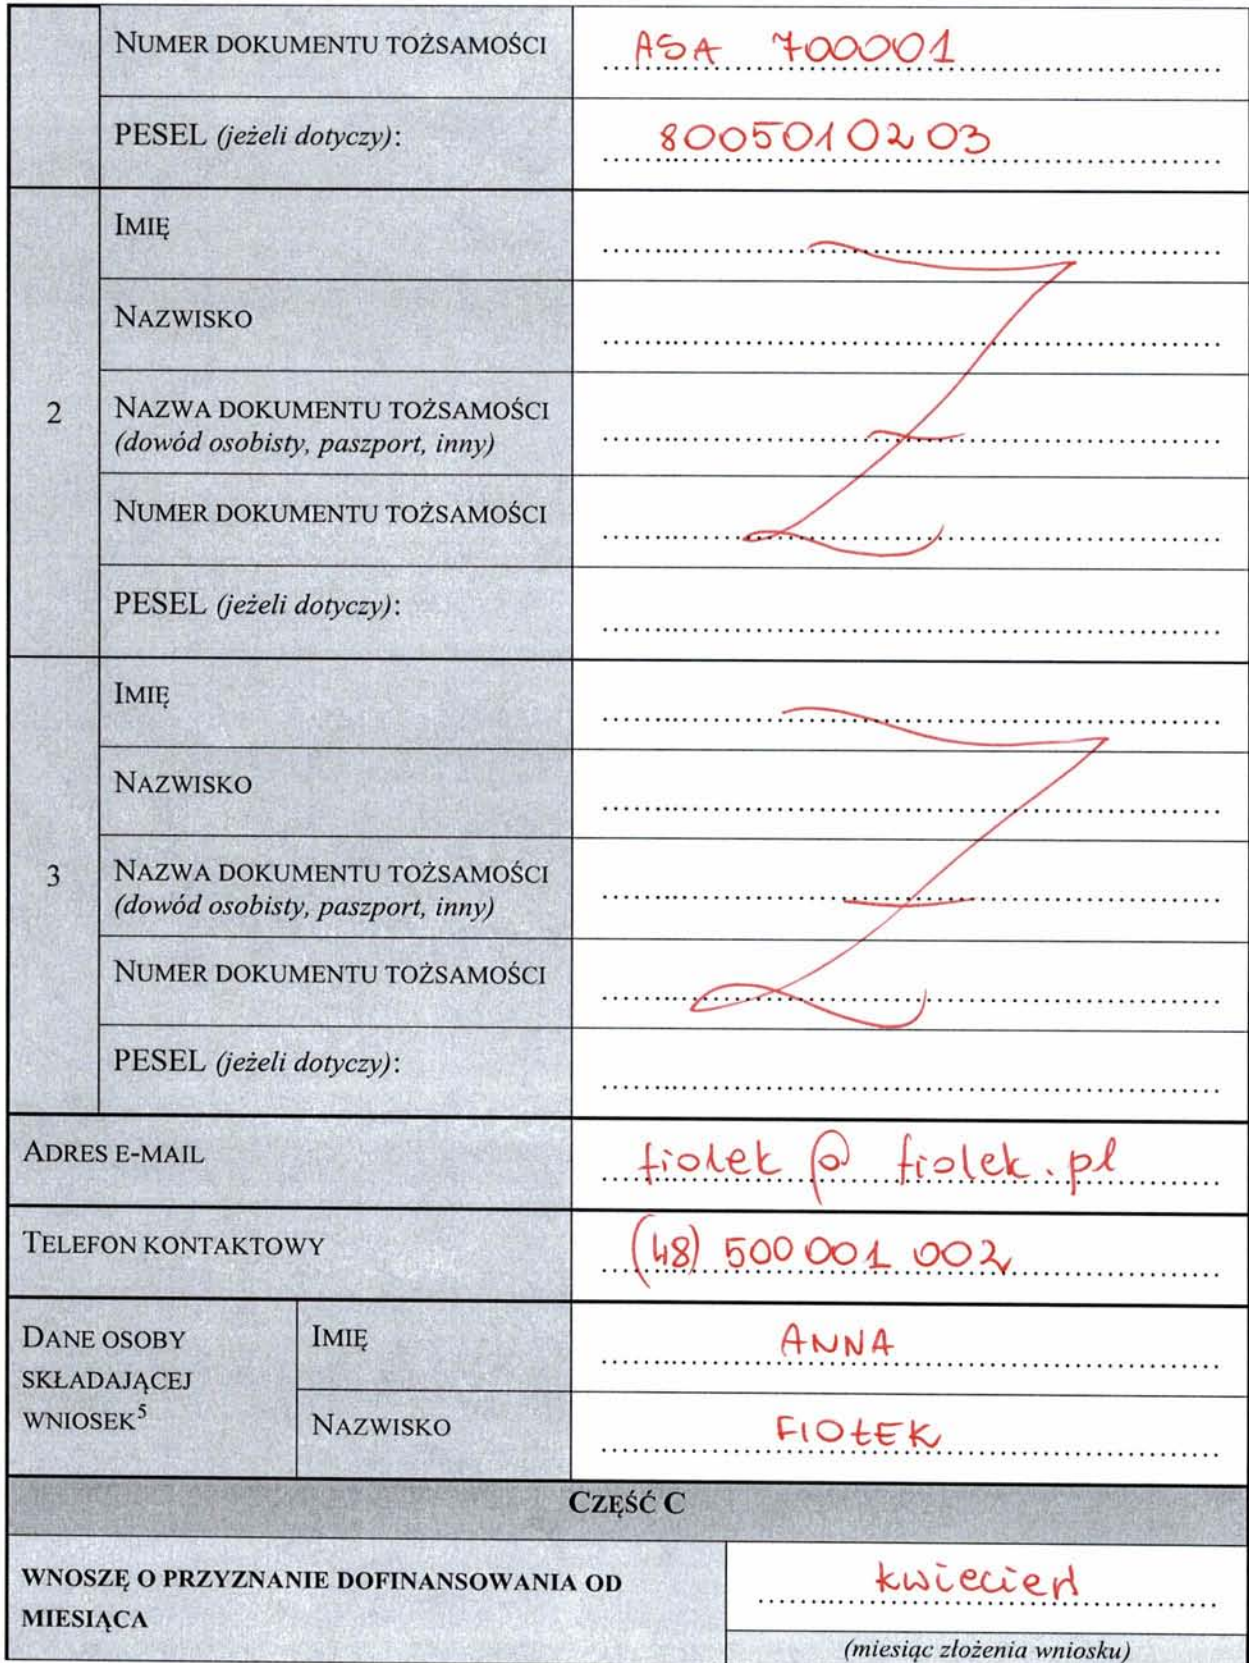 NUMER DOKUMENTU TOŻSAMOŚCI ASA 700001
PESEL (jeżeli dotyczy): 8005010203
IMIĘ
NAZWISKO
2
NAZWA DOKUMENTU TOŻSAMOŚCI
(dowód osobisty, paszport, inny)
NUMER DOKUMENTU TOŻSAMOŚCI
PESEL (jeżeli dotyczy):
IMIĘ
NAZWISKO
3
NAZWA DOKUMENTU TOŻSAMOŚCI
(dowód osobisty, paszport, inny)
NUMER DOKUMENTU TOŻSAMOŚCI
PESEL (jeżeli dotyczy):
ADRES E-MAIL fiolek @ fiolek.pl
TELEFON KONTAKTOWY (48) 500 001 002
DANE OSOBY
SKŁADAJĄCEJ
WNIOSEK5
IMIĘ ANNA
NAZWISKO FIOŁEK
CZĘŚĆ C
WNOSZĘ O PRZYZNANIE DOFINANSOWANIA OD
MIESIĄCA
kwiecień
(miesiąc złożenia wniosku)